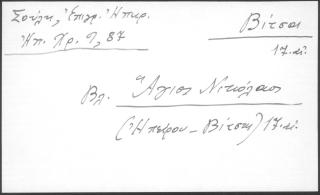 Σούλη, Ἐπιγρ. Ἠπειρ.
Ἠπ. Χρ. 9, 87
Βίτσα
17. αἰ.
Βλ. Ἅγιος Νικόλαος
(Ἠπείρου - Βίτσης) 17. αἰ.